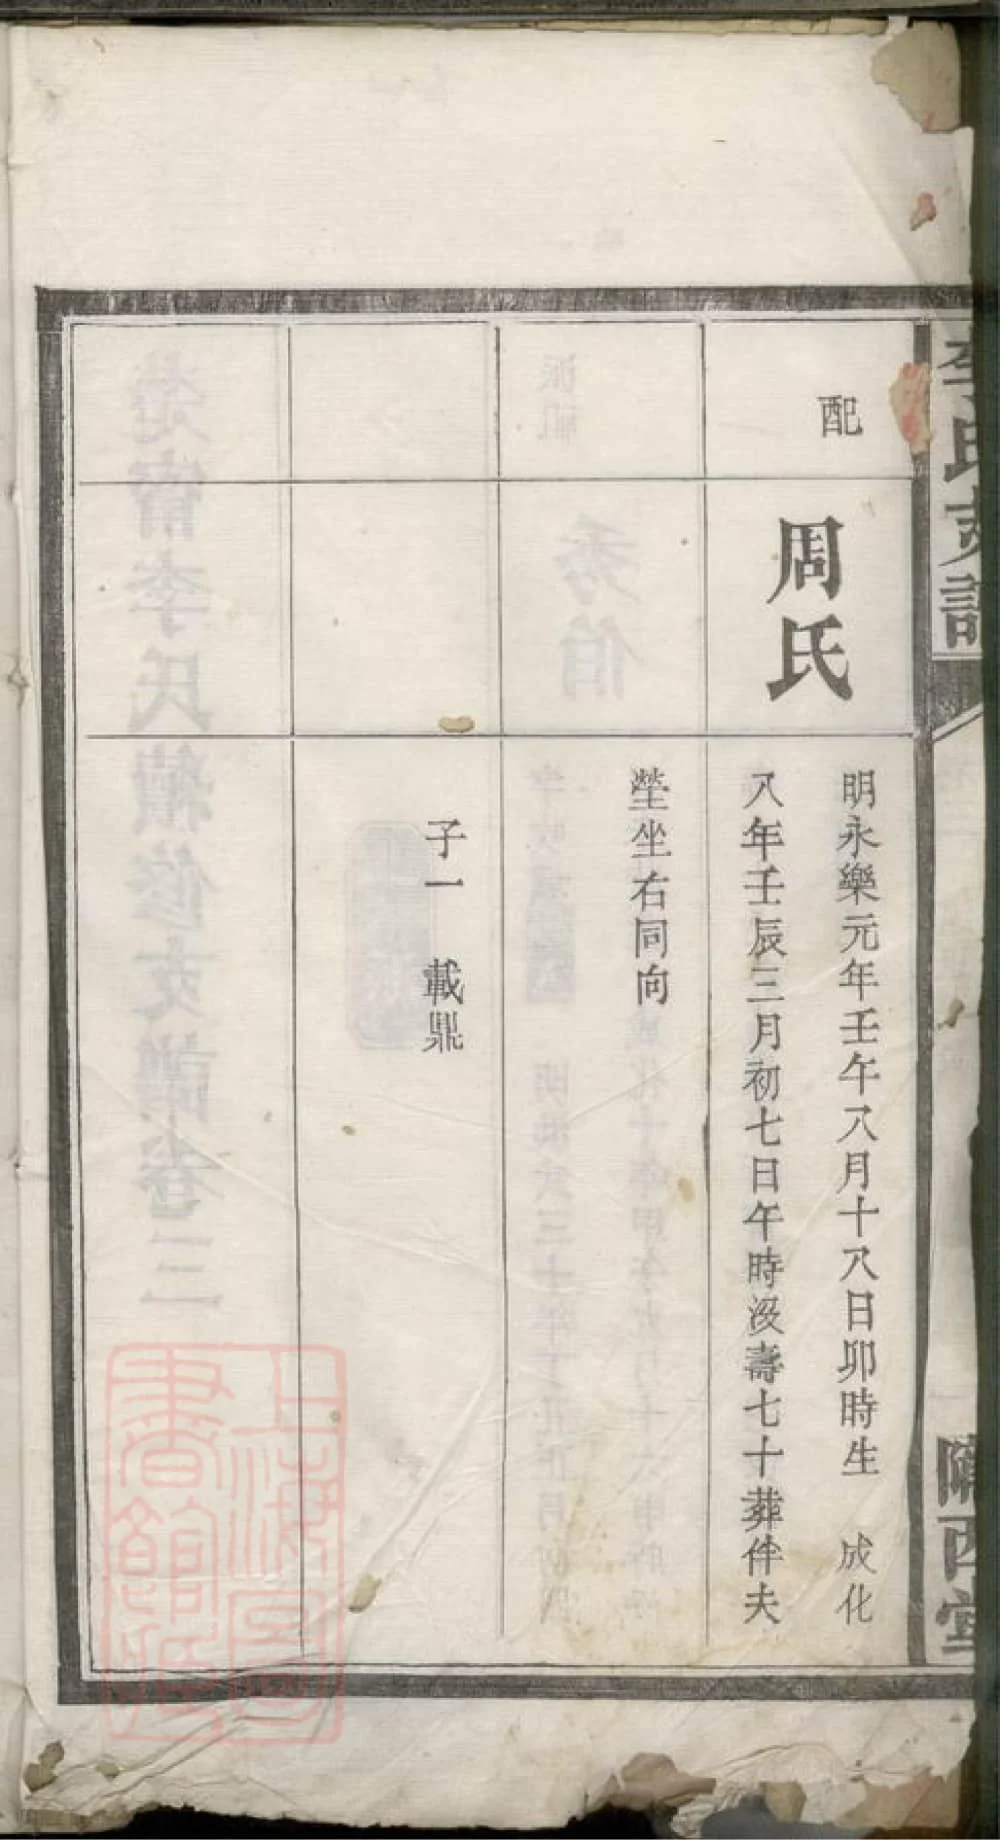 李氏支譜
隴西堂
配
周氏
明永樂元年壬午八月十八日卯時生　成化
八年壬辰三月初七日午時沒壽七十葬伴夫
塋坐右同向
子一　載鼎
上海圖
書館藏